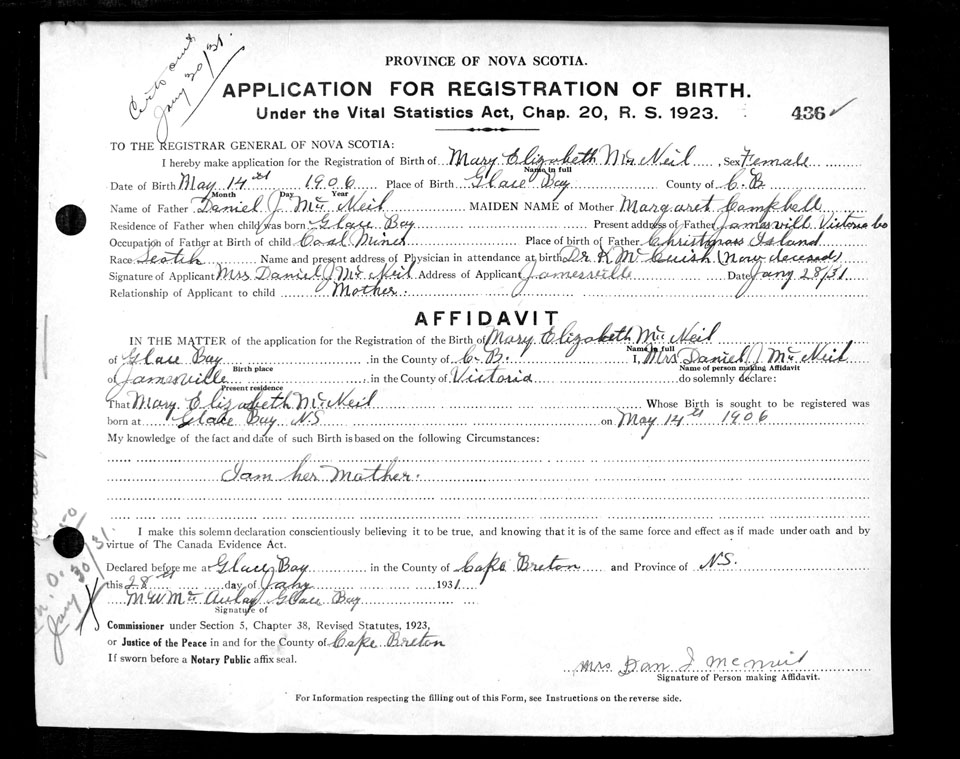 Jany 30/31.
PROVINCE OF NOVA SCOTIA.
APPLICATION FOR REGISTRATION OF BIRTH.
Under the Vital Statistics Act, Chap. 20, R. S. 1923.
436 ✓
TO THE REGISTRAR GENERAL OF NOVA SCOTIA:
I hereby make application for the Registration of Birth of Mary Elizabeth McNeil, Sex Female
Name in full
Date of Birth May 14th 1906 Place of Birth Glace Bay County of C. B.
Month Day Year
Name of Father Daniel J McNeil MAIDEN NAME of Mother Margaret Campbell
Residence of Father when child was born Glace Bay Present address of Father Jamesville Victoria Co
Occupation of Father at Birth of child Coal Miner Place of birth of Father Christmas Island
Race Scotch Name and present address of Physician in attendance at birth Dr K McCuish (Now deceased)
Signature of Applicant Mrs Daniel J McNeil Address of Applicant Jamesville Date Jany 28/31
Relationship of Applicant to child Mother.
AFFIDAVIT
IN THE MATTER of the application for the Registration of the Birth of Mary Elizabeth McNeil
Name in full
of Glace Bay in the County of C. B. I, Mrs Daniel J McNeil
Birth place Name of person making Affidavit
of Jamesville in the County of Victoria do solemnly declare:
Present residence
That Mary Elizabeth McNeil Whose Birth is sought to be registered was
born at Glace Bay N S on May 14th 1906
My knowledge of the fact and date of such Birth is based on the following Circumstances:
I am her Mother.
I make this solemn declaration conscientiously believing it to be true, and knowing that it is of the same force and effect as if made under oath and by
virtue of The Canada Evidence Act.
Declared before me at Glace Bay in the County of Cape Breton and Province of N.S.
this 28th day of Jany 1931
M W McAulay Glace Bay
Signature of
Commissioner under Section 5, Chapter 38, Revised Statutes, 1923,
or Justice of the Peace in and for the County of Cape Breton
If sworn before a Notary Public affix seal.
Mrs Dan J McNeil
Signature of Person making Affidavit.
For Information respecting the filling out of this Form, see Instructions on the reverse side.
Jany 30/31.